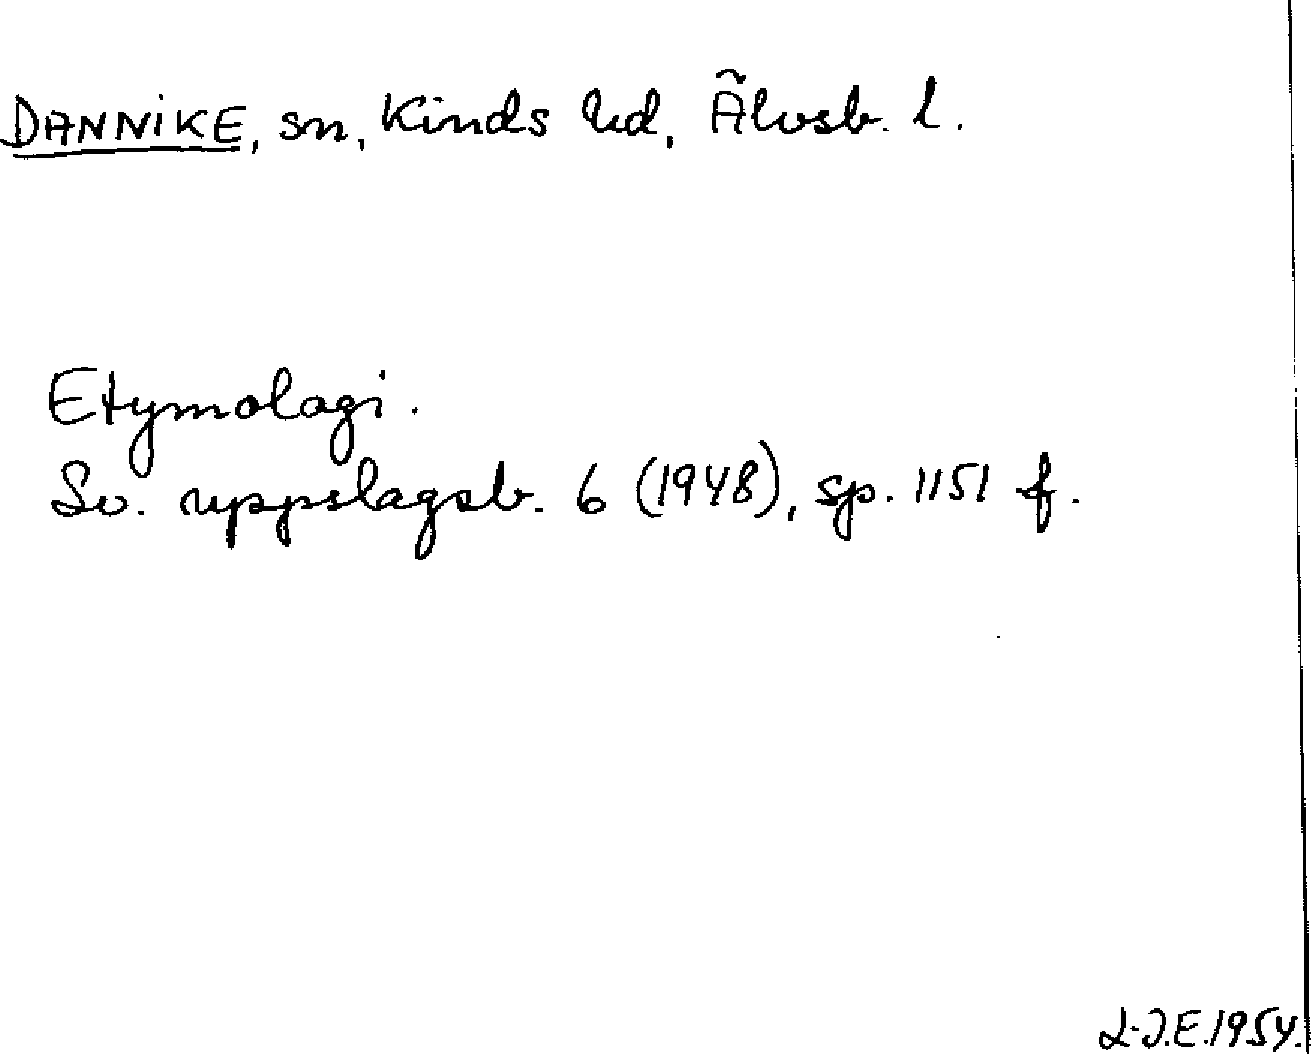 DANNIKE, sn, Kinds hd, Älvsb. l.
Etymologi.
Sv. uppslagsb. 6 (1948), sp. 1151 f.
L-J.E. 1954.